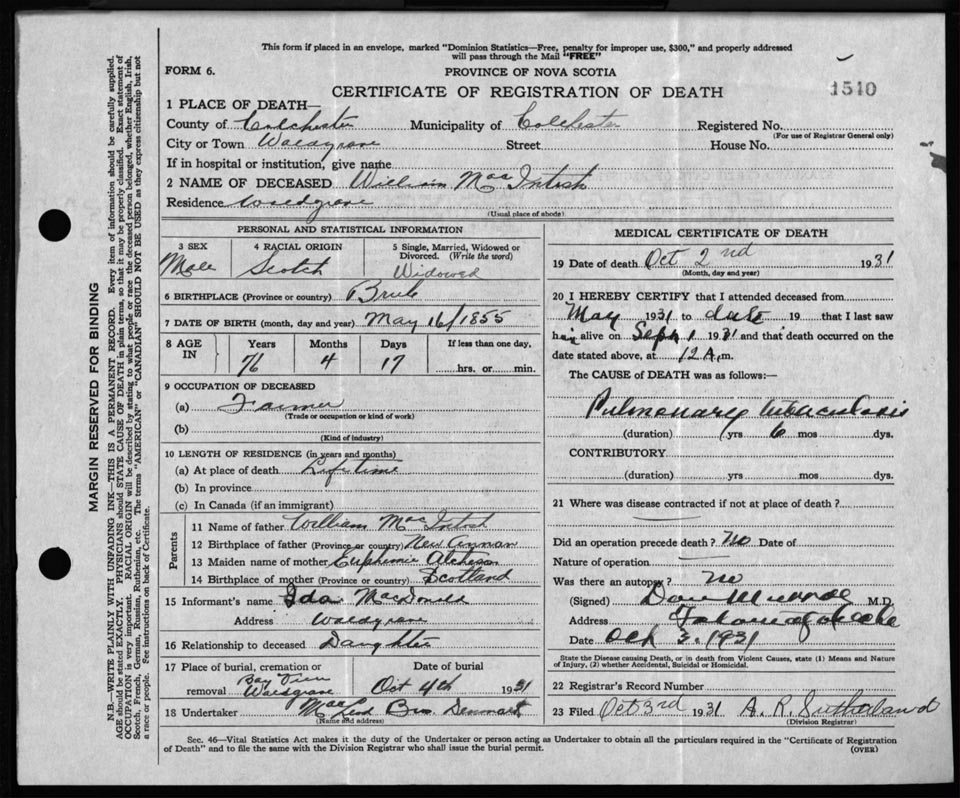 This form if placed in an envelope, marked "Dominion Statistics—Free, penalty for improper use, $300," and properly addressed
will pass through the Mail "FREE"
FORM 6.
PROVINCE OF NOVA SCOTIA
CERTIFICATE OF REGISTRATION OF DEATH
1510
MARGIN RESERVED FOR BINDING
N.B.—WRITE PLAINLY WITH UNFADING INK—THIS IS A PERMANENT RECORD. Every item of information should be carefully supplied.
AGE should be stated EXACTLY. PHYSICIANS should STATE CAUSE OF DEATH in plain terms, so that it may be properly classified. Exact statement of
OCCUPATION is very important. RACIAL ORIGIN will be described by stating to what people or race the deceased person belonged, whether English, Irish,
Scotch, French, German, Russian, Ruthenian, etc. The terms "AMERICAN" or "CANADIAN" SHOULD NOT BE USED as they express citizenship but not
a race or people. Fee instructions on back of Certificate.
1 PLACE OF DEATH—
County of Colchester Municipality of Colchester Registered No.
(For use of Registrar General only)
City or Town Waldgrave Street House No.
If in hospital or institution, give name
2 NAME OF DECEASED William MacIntosh
Residence Waldgrave
(Usual place of abode)
PERSONAL AND STATISTICAL INFORMATION
3 SEX 4 RACIAL ORIGIN 5 Single, Married, Widowed or
Divorced. (Write the word)
Male Scotch Widowed
6 BIRTHPLACE (Province or country) Brule
7 DATE OF BIRTH (month, day and year) May 16/1855
8 AGE IN Years Months Days If less than one day,
76 4 17 hrs. or min.
9 OCCUPATION OF DECEASED
(a) Farmer
(Trade or occupation or kind of work)
(b)
(Kind of industry)
10 LENGTH OF RESIDENCE (in years and months)
(a) At place of death Lifetime
(b) In province
(c) In Canada (if an immigrant)
Parents
11 Name of father William MacIntosh
12 Birthplace of father (Province or country) New Annan
13 Maiden name of mother Euphemia Atcheson
14 Birthplace of mother (Province or country) Scotland
15 Informant's name Ida MacDonald
Address Waldgrave
16 Relationship to deceased Daughter
17 Place of burial, cremation or Date of burial
removal Bay View Waldgrave Oct 4th 1931
18 Undertaker MacLeod Bros Denmark
(Name and address)
MEDICAL CERTIFICATE OF DEATH
19 Date of death Oct 2nd 1931
(Month, day and year)
20 I HEREBY CERTIFY that I attended deceased from
May 1931 to date 19 that I last saw
him alive on Sept 1 1931 and that death occurred on the
date stated above, at 12 A.m.
The CAUSE of DEATH was as follows:—
Pulmonary tuberculosis
(duration) yrs 6 mos dys.
CONTRIBUTORY
(duration) yrs mos dys.
21 Where was disease contracted if not at place of death?
Did an operation precede death? No Date of
Nature of operation
Was there an autopsy? No
(Signed) Dan Munroe M.D.
Address Tatamagouche
Date Oct 3, 1931
State the Disease causing Death, or in death from Violent Causes, state (1) Means and Nature
of Injury, (2) whether Accidental, Suicidal or Homicidal.
22 Registrar's Record Number
23 Filed Oct 3rd 1931 A. R. Sutherland
(Division Registrar)
Sec. 46—Vital Statistics Act makes it the duty of the Undertaker or person acting as Undertaker to obtain all the particulars required in the "Certificate of Registration
of Death" and to file the same with the Division Registrar who shall issue the burial permit.
(OVER)